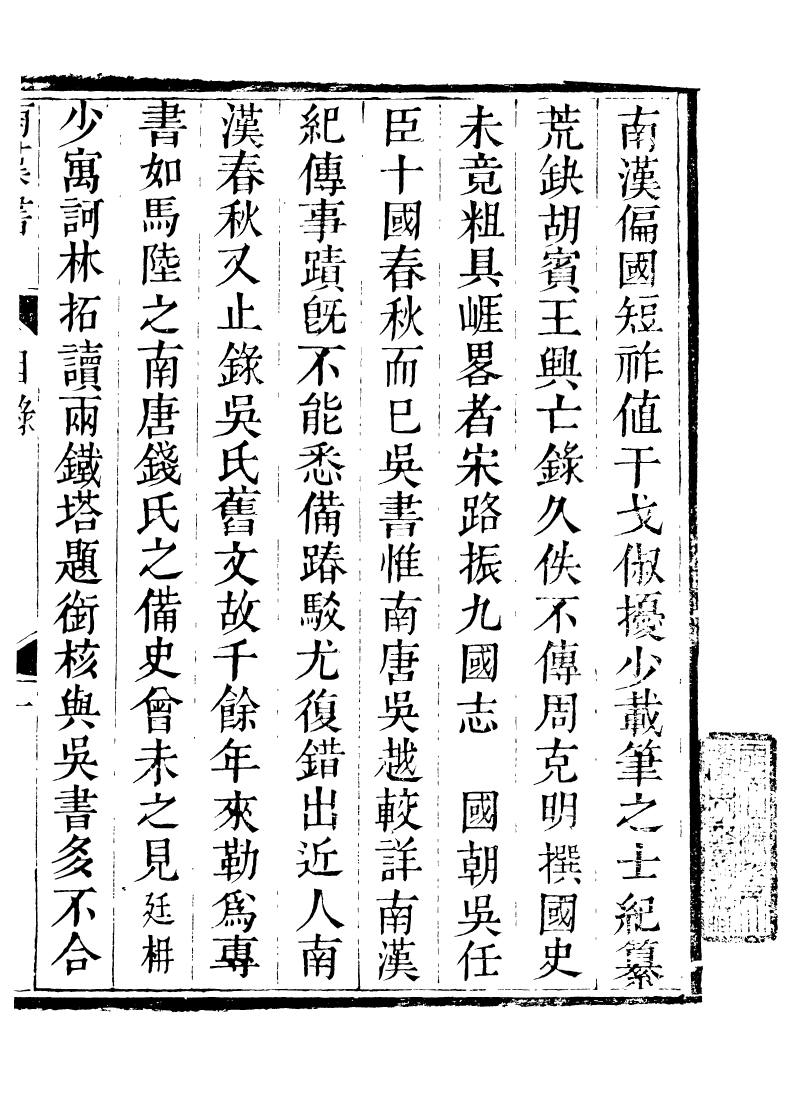 南漢偏國短祚值干戈俶擾少載筆之士紀纂
荒缺胡賓王興亡錄久佚不傳周克明撰國史
未竟粗具崕畧者宋路振九國志　國朝吳任
臣十國春秋而已吳書惟南唐吳越較詳南漢
紀傳事蹟旣不能悉備踳駁尤復錯出近人南
漢春秋又止錄吳氏舊文故千餘年來勒爲專
書如馬陸之南唐錢氏之備史曾未之見廷枏
少寓訶林拓讀兩鐵塔題銜核與吳書多不合
南漢書　目錄　一